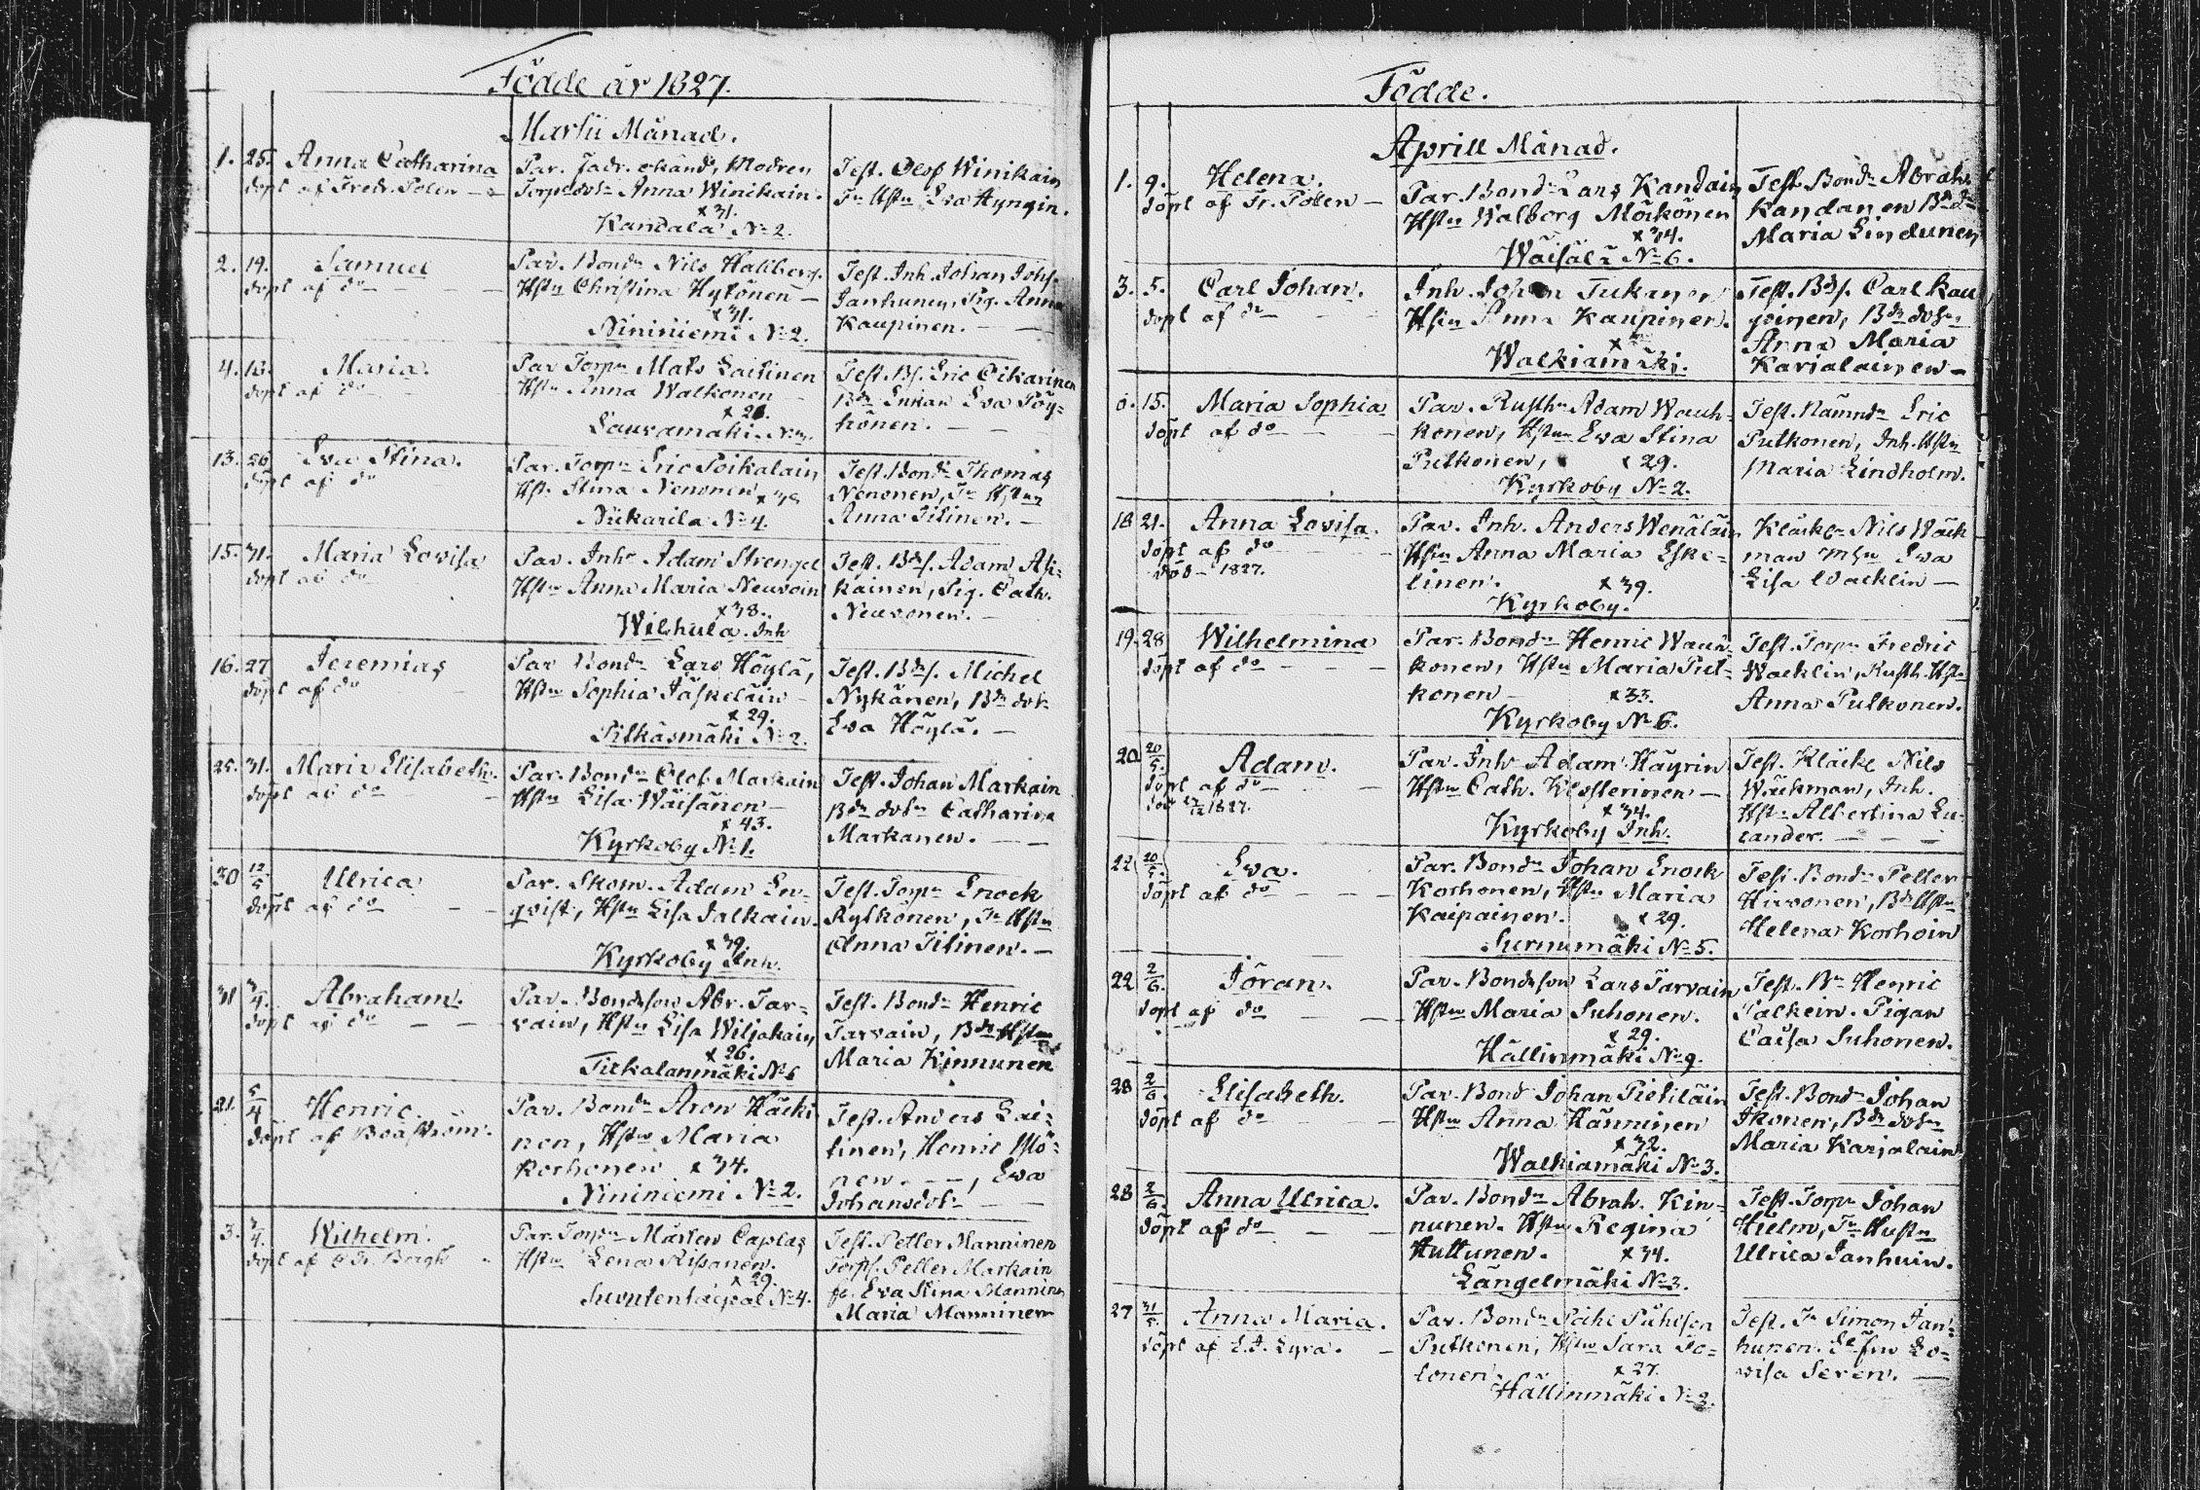 Födde år 1827.
Martii Månad.
1. 25. Anna Catharina
döpt af Fredr. Polen
Par. Fadr. okänd, Modren
Torpdotr Anna Winikain.
x 31.
Kandala No 2.
Test. Olof Winikain
Tr Hstu Eva Hyngin.
2. 19. Samuel
döpt af do
Par. Bondn Nils Hallberg.
Hstu Christina Hytönen —
x 31.
Nininiemi No 2.
Test. Inh. Johan Johs.
Janhunen, Pig. Anna
Kaupinen. —
4. 18. Maria.
döpt af do
Par Torpn Mats Laitinen
Hstu Anna Walkonen
x 26.
Lauramäki
Test. Bs. Eric Oikarinen
Bdn Enkan Eva Pöy-
hönen. —
13. 26 Eva Stina.
döpt af do
Par. Torpn Eric Poikalain
Hst. Stina Nenonen x 38
Nükarila No 4.
Test. Bondn Thomas
Nenonen, Tr Hstun
Anna Titinen. —
15. 31. Maria Lovisa
döpt af do
Par. Inhr Adam Strengel
Hstu Anna Maria Neuvoin
x 38.
Wilhula. Inh
Test. Bds. Adam Asi-
kainen, Pig. Cath.
Neuvonen. —
16. 27 Jeremias
döpt af do
Par Bondn Lars Höylä,
Hstu Sophia Jäskeläin —
x 29.
Pitkäsmäki No 2.
Test. Bds. Michel
Nykänen, Bdn dotr
Eva Höylä. —
25. 31. Maria Elisabeth.
döpt af do
Par. Bondn Olof Markain
Hstu Lisa Wäisänen —
x 43.
Kyrkoby No 1.
Test. Johan Markain
Bdn dotr Catharina
Markanen. —
30 12/5 Ulrica
döpt af do
Par. Skom. Adam En-
qvist, Hstu Lisa Jalkain.
x 39.
Kyrkoby Inh.
Test. Torpn Enock
Rytkönen, Tr Hstu
Anna Titinen. —
31 /4. Abraham.
döpt af do
Par. Bondeson Abr. Tar-
vain, Hstu Lisa Wiljakain
x 26.
Titkalanmäki No 6
Test. Bondn Henric
Tarvain, Bdn Hstu
Maria Kinnunen
21. 5/4 Henric.
döpt af Boaström.
Par. Bondn Aron Häcki
nen, Hstu Maria
Korhonen x 34.
Nininiemi No 2.
Test. Anders Lai-
tinen, Henric Mö-
nen. —, Eva
Johansdotr —
3. /4. Wilhelm.
döpt af
Par. Torpn Mårten Caplas
Hstu Lena Rissanen.
x 29.
No 4.
Test. Petter Manninen
Torps. Petter Markain
Eva Stina Manninen
Maria Manninen
Födde.
Aprill Månad.
1. 9. Helena.
döpt af Fr. Polen —
Par. Bondn Lars Kandain
Hstu Walborg Möckönen
x 34.
Wäisälä No 6.
Test. Bondn Abrah.
Kandanen Bdn
Maria Lindunen
3. 5. Carl Johan.
döpt af do
Inh. Johan Tukanen
Hstu Anna Kaupinen.
x
Walkiamäki.
Test. Bds. Carl Kau
pinen, Bdn dotr
Anna Maria
Karjalainen —
15. Maria Sophia
döpt af do
Par. Rusthn Adam Wauh-
konen, Hstun Eva Stina
Putkonen, x 29.
Kyrkoby No 2.
Test. Nämndn Eric
Putkonen, Inh. Hstu
Maria Lindholm.
18 21. Anna Lovisa.
döpt af do
död 1827.
Par. Inh. Anders Wenäläin
Hstu Anna Maria Eske-
linen. x 39.
Kyrkoby.
Kläckr Nils Wäck
man Eva
Lisa Wacklin —
19. 28 Wilhelmina
döpt af do
Par. Bondn Henric Wauh-
konen, Hstu Maria Put-
konen — x 33.
Kyrkoby No 6.
Test. Torpn Fredric
Wacklin, Rusth. Hstu
Anna Putkonen.
20 20/5. Adam.
döpt af do
död 1827.
Par. Inhr Adam Häyrin
Hstu Cath. Klosterinen —
x 34.
Kyrkoby Inh.
Test. Kläcke Nils
Wäckman, Inh.
Hstu Albertina Lu-
cander. —
22 20/5. Eva.
döpt af do
Par. Bondn Johan Enock
Korhonen, Hstu Maria
Kaipainen. x 29.
Surnumäki No 5.
Test. Bondn Petter
Hirvonen, Bdn Hstu
Helena Korhoin
22 2/6. Jöran.
döpt af do
Par. Bondeson Lars Tarvain
Hstu Maria Suhonen.
x 29.
Hällinmäki No 9.
Test. Bn Henric
Palkein. Pigan
Caisa Suhonen.
28 2/6. Elisabeth.
döpt af do
Par. Bond Johan Pietiläin
Hstu Anna Hänninen
x 32.
Walkiamäki No 3.
Test. Bondn Johan
Ikonen, Bdn dotr
Maria Karjalain
28 2/6. Anna Ulrica.
döpt af do
Par. Bondn Abrah. Kin-
nunen. Hstu Regina
Huttunen. x 34.
Längelmäki No 3.
Test. Torpn Johan
Hielm, Tr Hustu
Ulrica Janhuin.
27 31/5. Anna Maria.
döpt af E. J. Lyra. —
Par. Bondn
Putkonen, Hstu Sara Po-
tonen. x 27.
Hällinmäki No 2.
Test. Tr Simon Jan-
hunen. Lo-
visa Seren. —